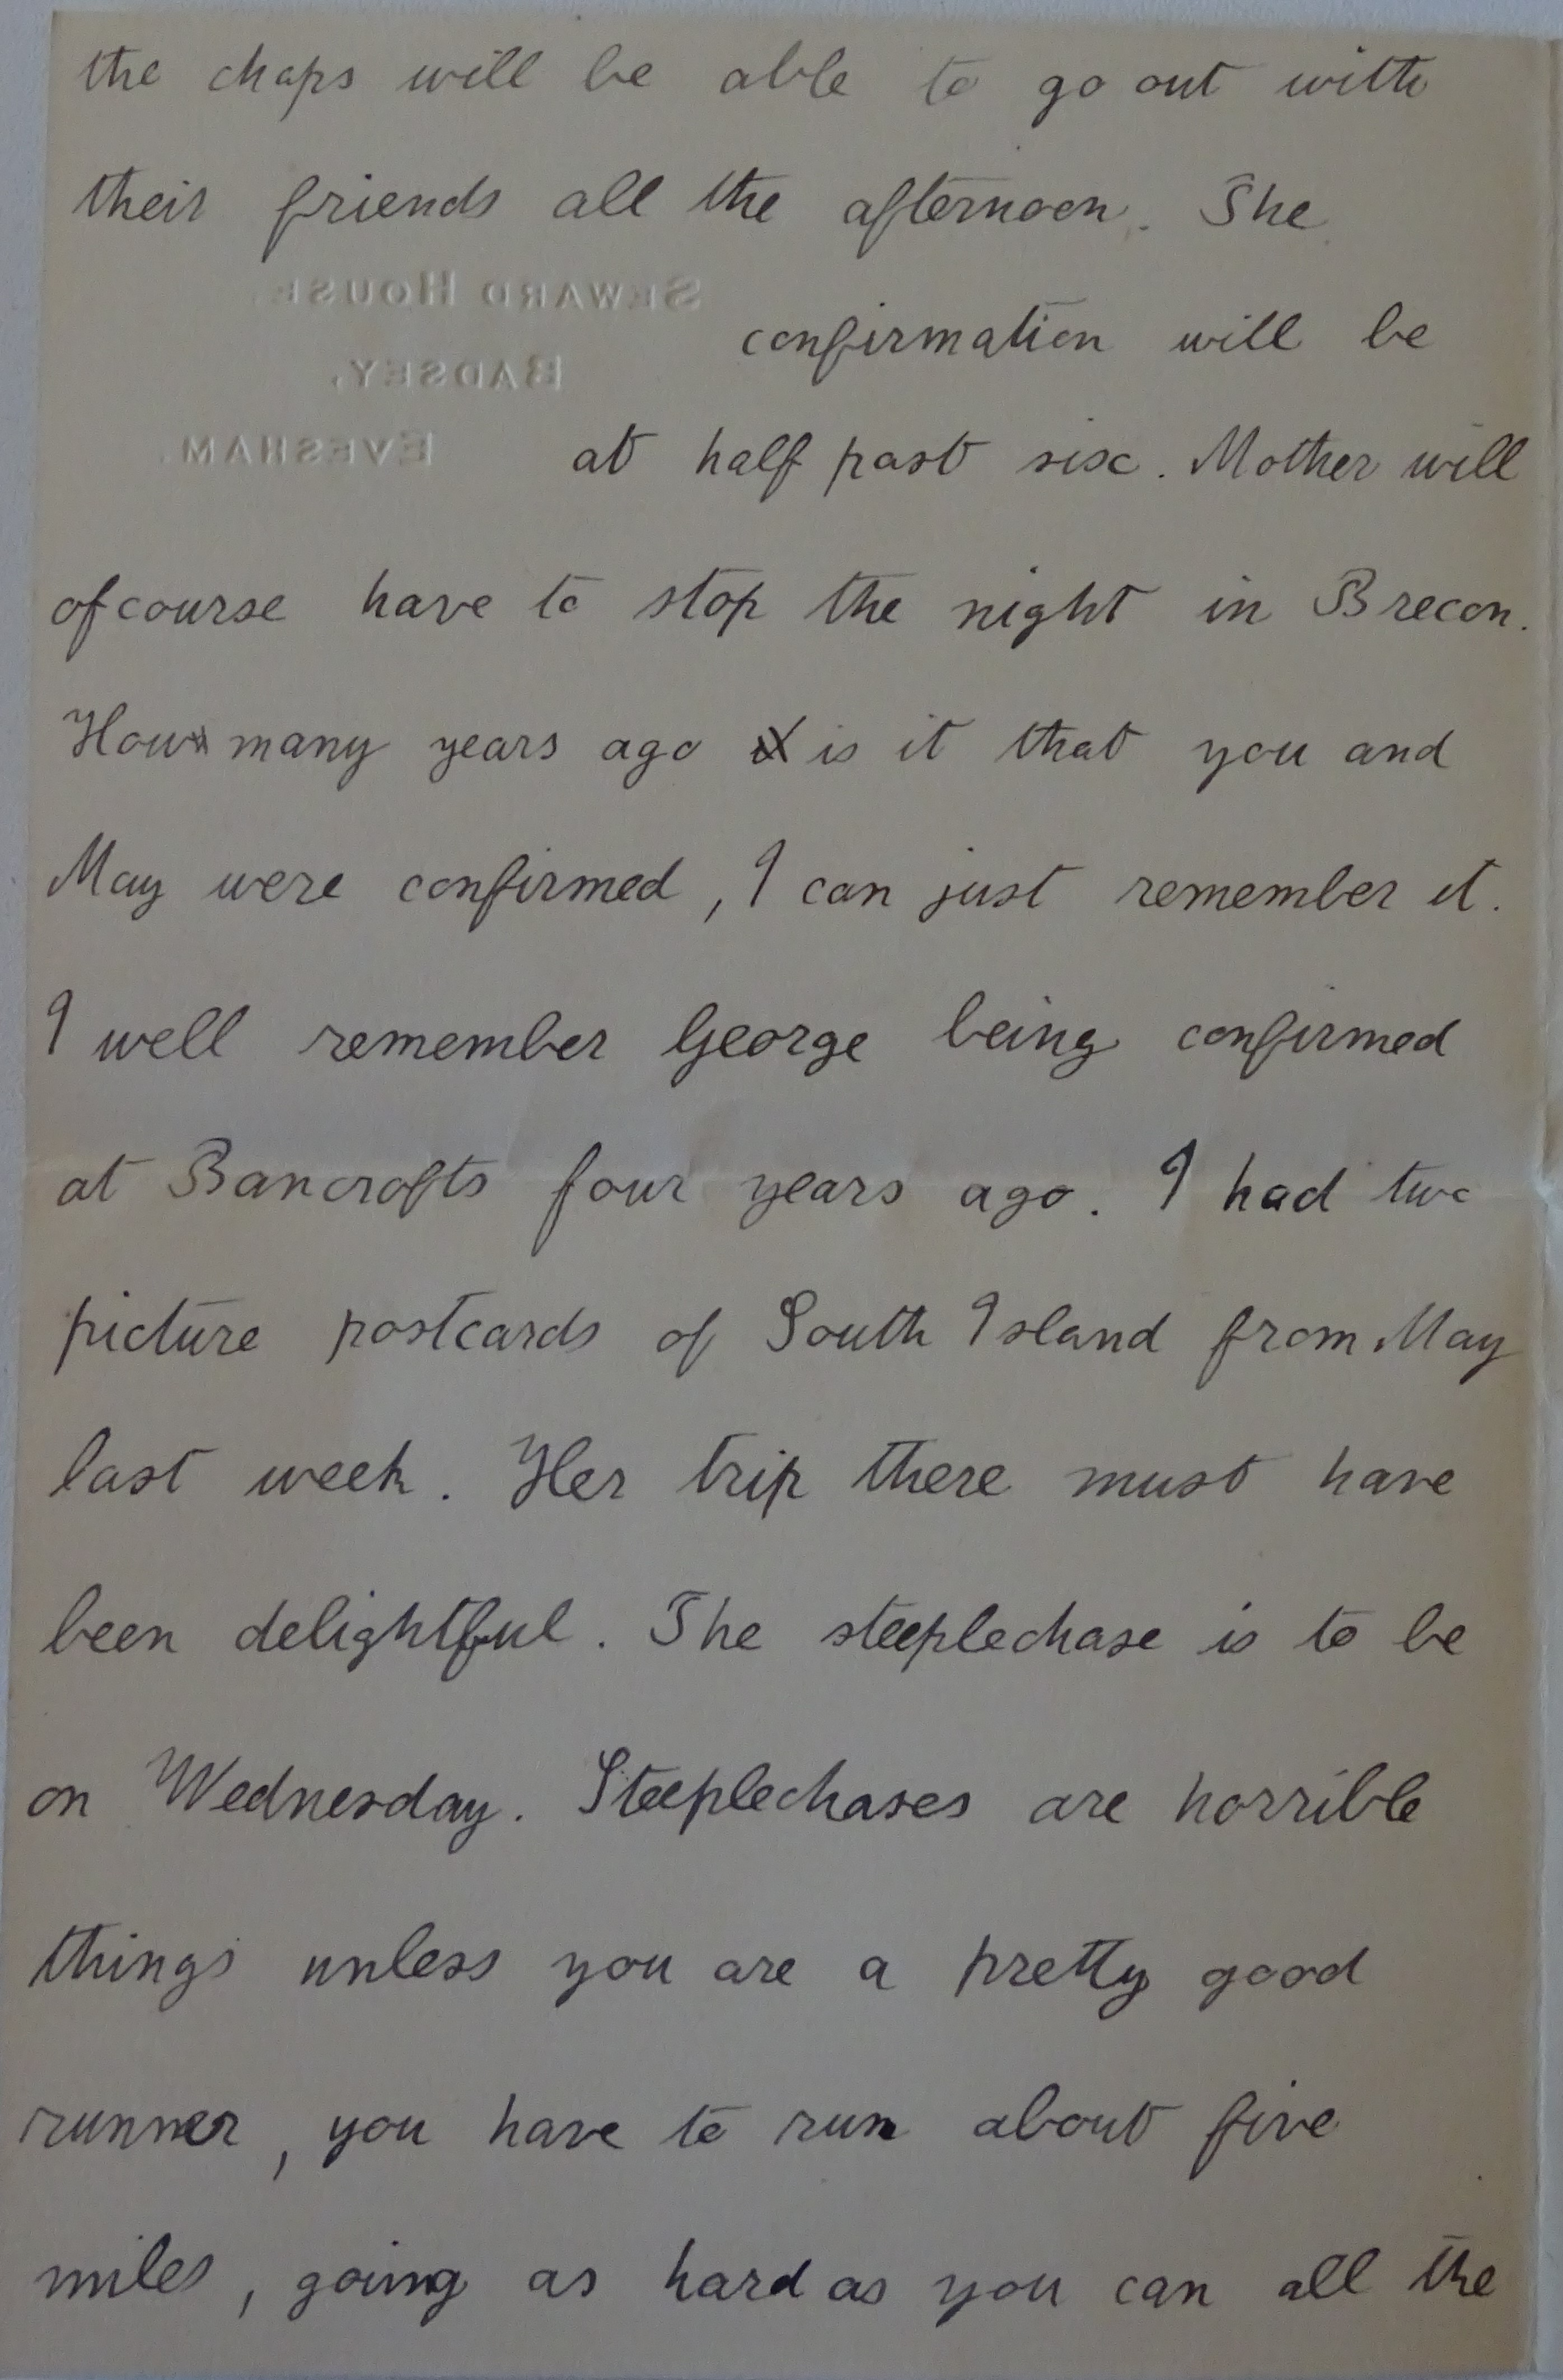 the chaps will be able to go out with
their friends all the afternoon. The
SEWARD HOUSE,
confirmation will be
BADSEY,
EVESHAM.
at half past six. Mother will
ofcourse have to stop the night in Brecon.
How many years ago is it that you and
May were confirmed, I can just remember it.
I well remember George being confirmed
at Bancrofts four years ago. I had two
picture postcards of South Island from May
last week. Her trip there must have
been delightful. The steeplechase is to be
on Wednesday. Steeplechases are horrible
things unless you are a pretty good
runner, you have to run about five
miles, going as hard as you can all the